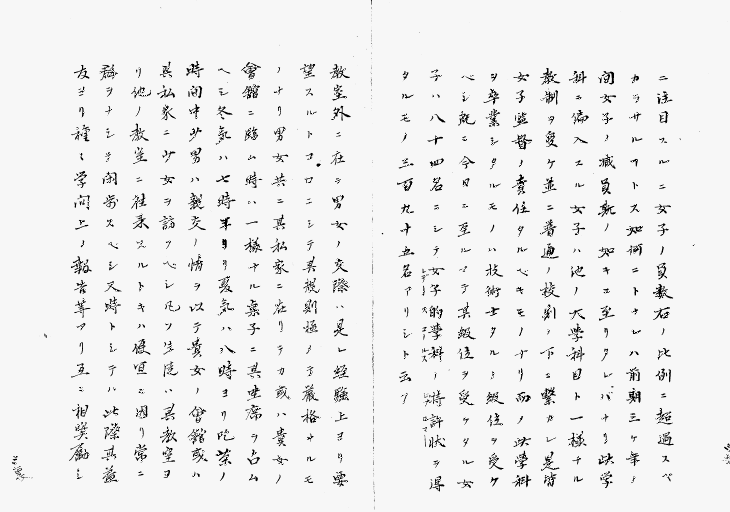 ニ注目スルニ女子ノ員数右ノ比例ニ超過スベ
カラサルヲトス如何ニトナレハ前期三ケ年ノ
間女子ノ減員斯ノ如キニ至リタレバナリ此学
科ニ偏入スル女子ハ他ノ大学科目ト一様ナル
教制ヲ受ケ並ニ普通ノ校則ノ下ニ繋カレ是皆
女子監督ノ責任タルベキモノナリ而ノ此学科
ヲ卒業シタルモノハ技術士タルノ級位ヲ受ケ
ベシ既ニ今日ニ至ルマテ其級位ヲ受ケタル女
子ハ八十四名ニシテ女子的学科ノ特許状ヲ得
タルモノ三百九十五名アリシト云フ
教室外ニ在テ男女ノ交際ハ是レ経験上ヨリ要
望スルトコロニシテ其規則極メテ厳格ナルモ
ノナリ男女共ニ其私家ニ在リテカ或ハ貴女ノ
會館ニ臨ム時ハ一様ナル案子ニ其坐席ヲ占ム
ヘシ冬気ハ七時半ヨリ夏気ハ八時ヨリ吃茶ノ
時間中少男ハ親交ノ情ヲ以テ貴女ノ會館或ハ
其私家ニ少女ヲ訪フヘシ凡ソ生徒ハ其教室ヨ
リ他ノ教室ニ往来スルトキハ便宜ニ因リ常ニ
群ヲナシテ閑歩スベシ又時トシテハ此際其益
友ヨリ種々学問上ノ報告等アリ互ニ相奨励シ